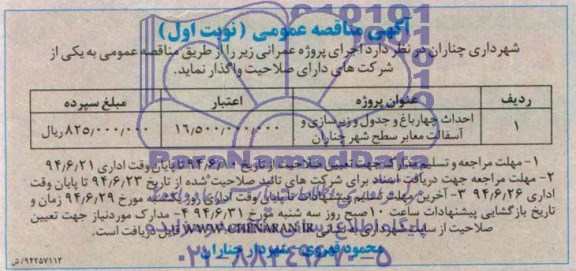 آگهی مناقصه عمومی (نوبت اول)
شهرداری چناران در نظر دارد اجرای پروژه عمرانی زیر را از طریق مناقصه عمومی به یکی از
شرکت های دارای صلاحیت واگذار نماید.
ردیف عنوان پروژه اعتبار مبلغ سپرده
۱ احداث چهارباغ و جدول و زیرسازی و آسفالت معابر سطح شهر چناران ۱۶٫۵۰۰٫۰۰۰٫۰۰۰ ۸۲۵٫۰۰۰٫۰۰۰ ریال
۱- مهلت مراجعه و تسلیم مدارک جهت تعیین صلاحیت از تاریخ تا پایان وقت اداری ۹۴/۶/۲۱
۲- مهلت مراجعه جهت دریافت اسناد برای شرکت های تائید صلاحیت شده از تاریخ ۹۴/۶/۲۳ تا پایان وقت
اداری ۹۴/۶/۲۶ ۳- آخرین مهلت تسلیم پیشنهادات تا پایان وقت اداری روز یکشنبه مورخ ۹۴/۶/۲۹ زمان و
تاریخ بازگشایی پیشنهادات ساعت ۱۰ صبح روز سه شنبه مورخ ۹۴/۶/۳۱ ۴- مدارک موردنیاز جهت تعیین
صلاحیت از سایت شهرداری به نشانی WWW.CHENARAN.IR قابل دریافت است.
محمود قهروی - شهردار چناران
۹۴۲۵۷۱۱۳/ش
ParsNamadData
۰۲۱-۸۸۳۴۹۶۷۰-۵